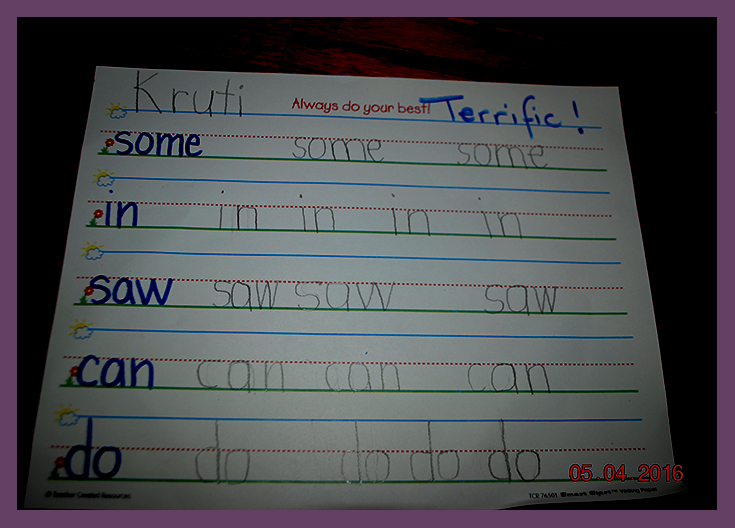 Kruti Always do your best! Terrific!
some some some
in in in in in
saw saw saw saw
can can can can
do do do do do
05.04.2016
© Teacher Created Resources TCR 76501 Smart Start™ Writing Paper